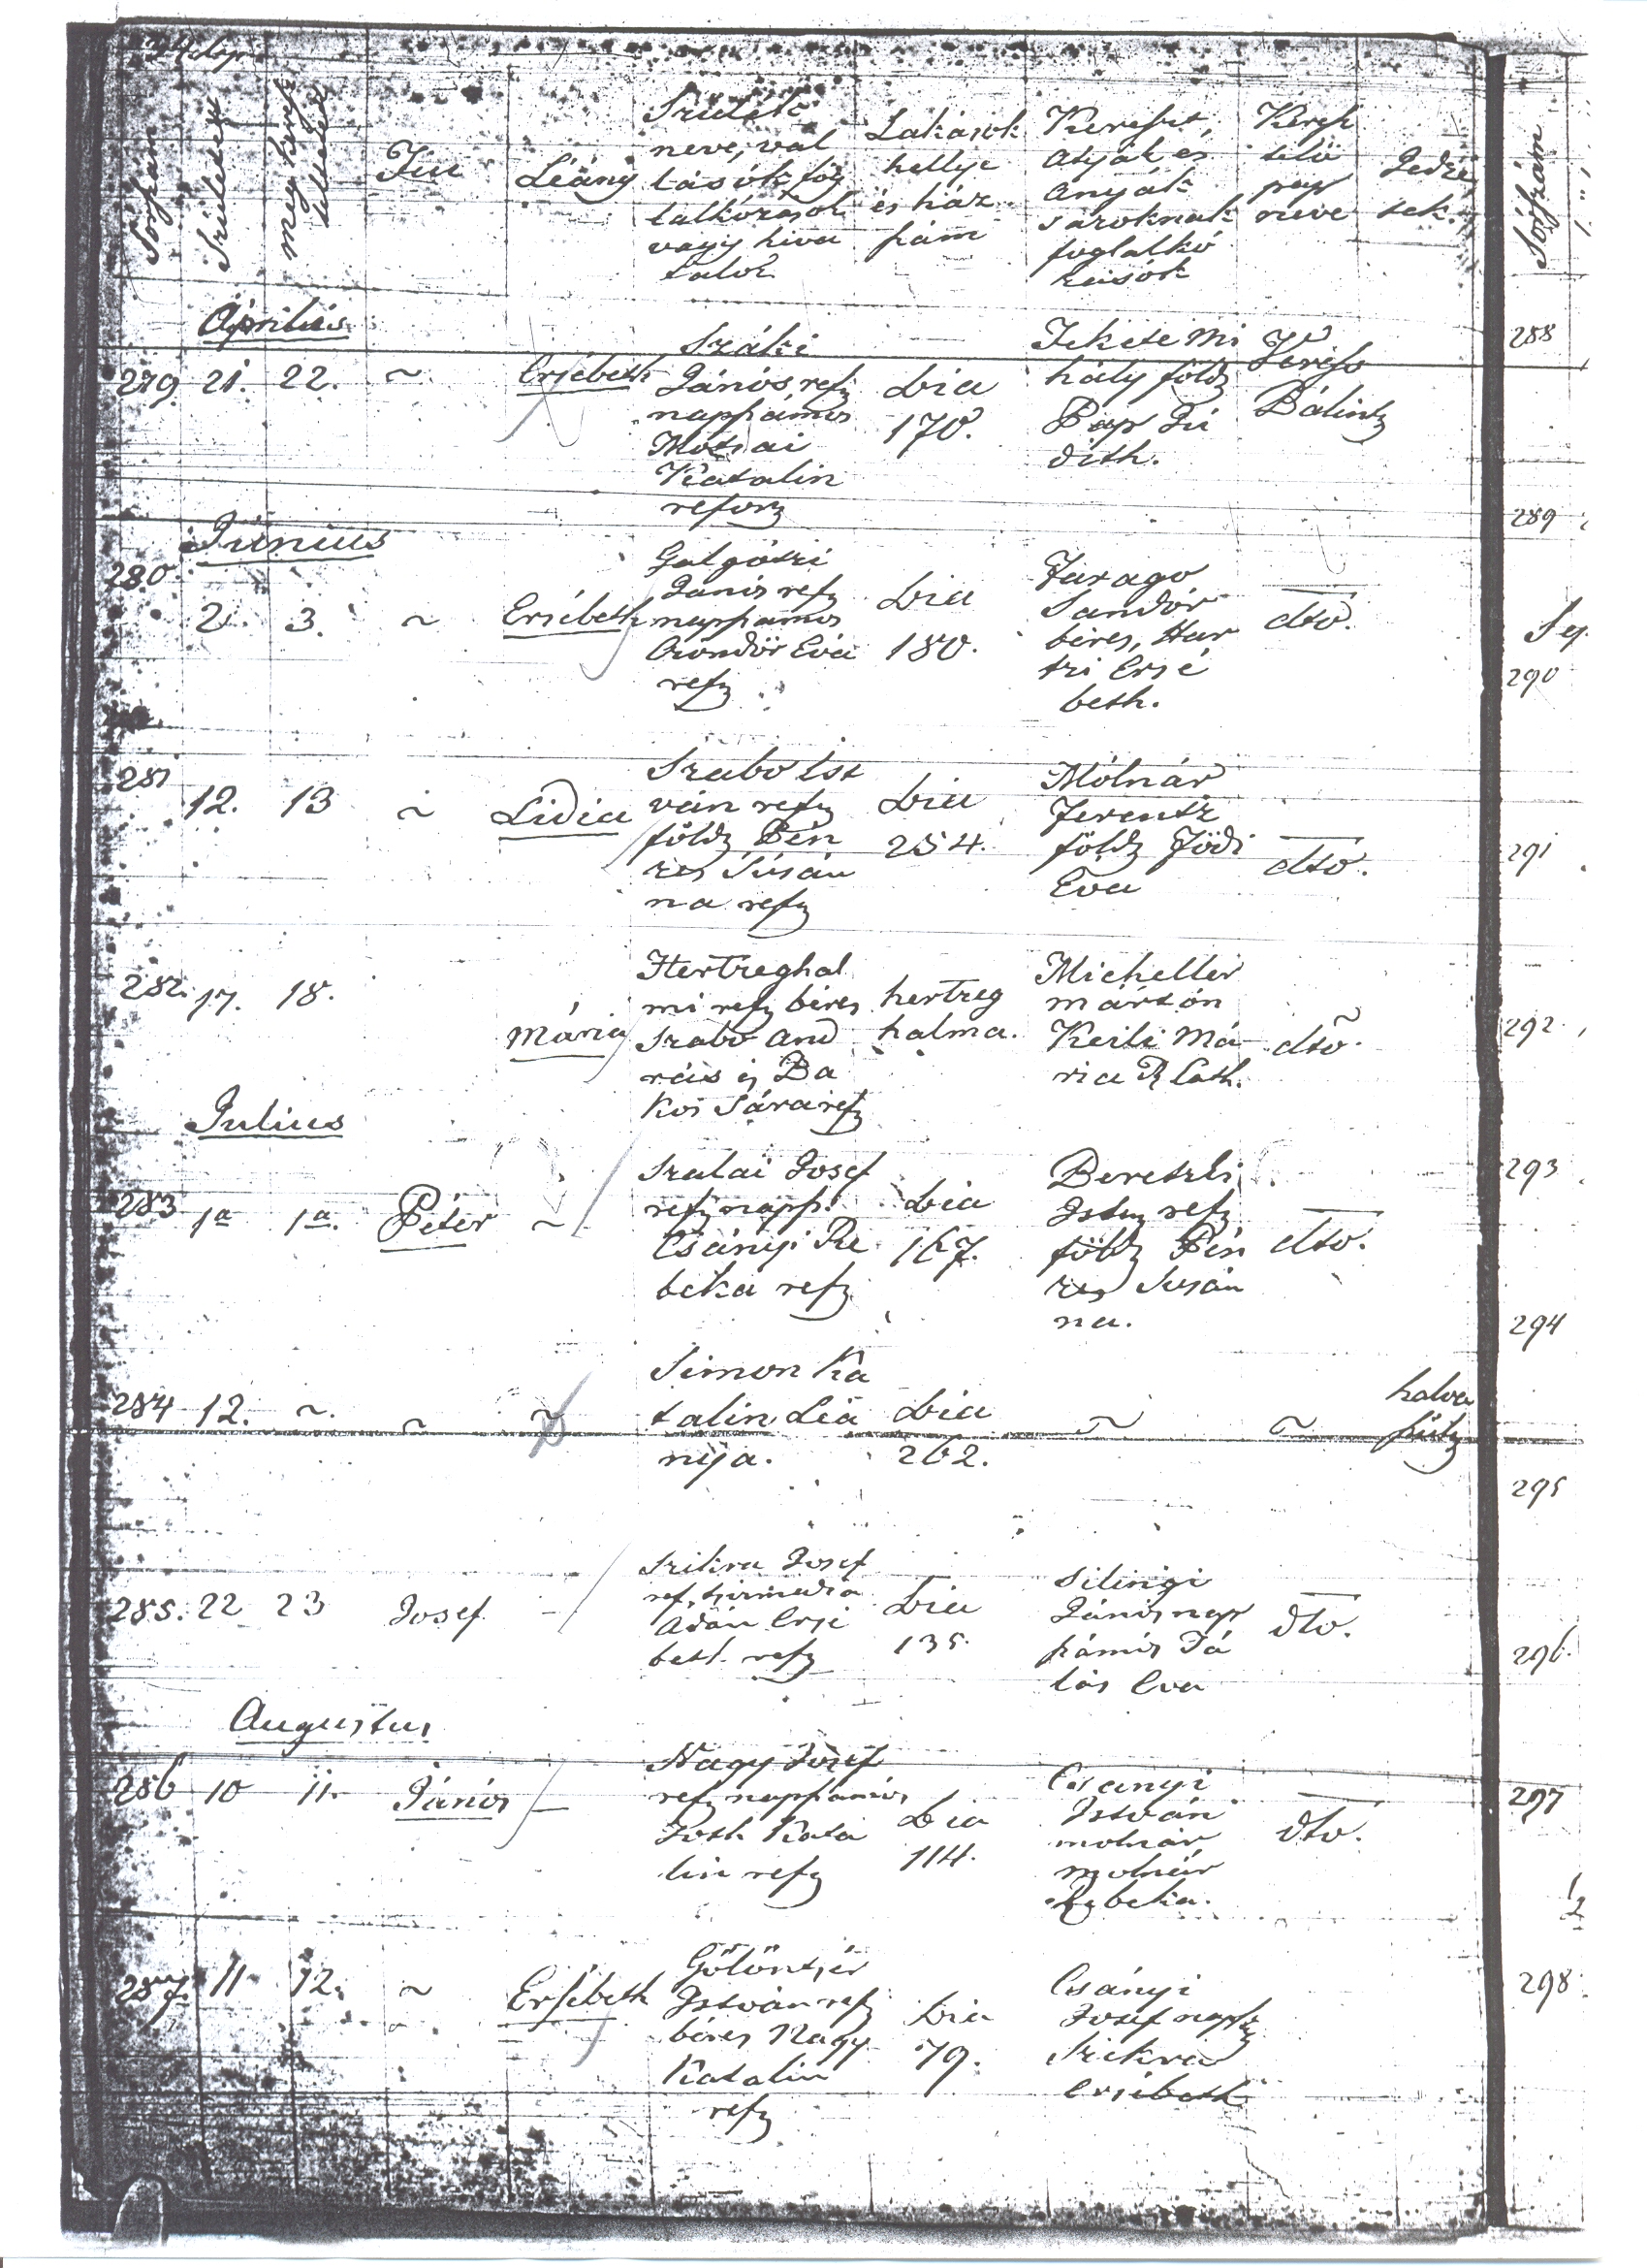 Sorszám
Születtek
meg keresz
teltettek
Fiu
Leány
Szülék
neve, val
lásók, fog
lalkózások
vagy hiva
talok
Lakások
hellye
és ház
szám
Kereszt
atyák és
anyák
foglalkó
zásók
Keresz
telő
pap
neve
Jedze
tek.
Sorszám
Április
279 21. 22. ~ Ersébeth
Száki
János, ref
napszámos
Motsai
Katalin
ref
bia
170.
Fekete Mi
hály földz
Pap Ju
dith.
Veress
Bálint
Június
280. 2. 3. ~ Ersébeth
Galgótzi
János ref
napszámos
Gondör Eva
ref
bia
180.
Farago
Sandór
béres, Har
tzi Ersé
beth.
dto.
281 12. 13 ~ Lidia
Szabo Ist
ván ref
földz Pén
zes Susán
na ref
bia
254.
Mólnár
Ferentz
földz Födi
Eva
dto.
282. 17. 18. Mária
Hertzeghal
mi ref béres
Szabo And
rás és Ba
kos Sára ref
hertzeg
halma.
Micheller
mártón
Keili Má
ria R Cath.
dto.
Julius
283 1a 1a. Péter ~
Szalai Josef
ref napsz
Csányi Re
béka ref
bia
167.
Beretzki
Istv ref
földz Pén
zes Susán
na.
dto.
284 12. ~ ~ ~
Simon Ka
talin Leá
nya.
bia
262.
~ ~
halva
szület
285. 22 23 Josef -
Szikra Josef
ref
Adán Ersé
beth ref
bia
135.
Silingi
János nap
számós Tá
lás Eva
dto.
Augustus
286 10 11. János -
Nagy Josef
ref napszámós
Toth Kata
lin ref
bia
114.
Csanyi
István
molnár
molnár
Rebeka.
dto.
287. 11 12. ~ Ersébeth
Gölöntsér
István ref
béres Nagy
Katalin
ref
bia
79.
Csányi
Josef napsz
Szikra
Ersébeth
288
289
290
291
292.
293
294
295
296.
297
298